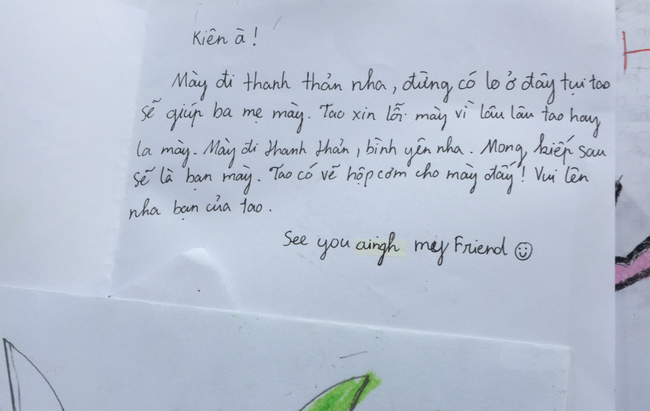 Kiên à!
Mày đi thanh thản nha, đừng có lo ở đây tụi tao
sẽ giúp ba mẹ mày. Tao xin lỗi mày vì lâu lâu tao hay
la mày. Mày đi thanh thản, bình yên nha. Mong kiếp sau
sẽ là bạn mày. Tao có vẽ hộp cơm cho mày đấy! Vui lên
nha bạn của tao.
See you my Friend